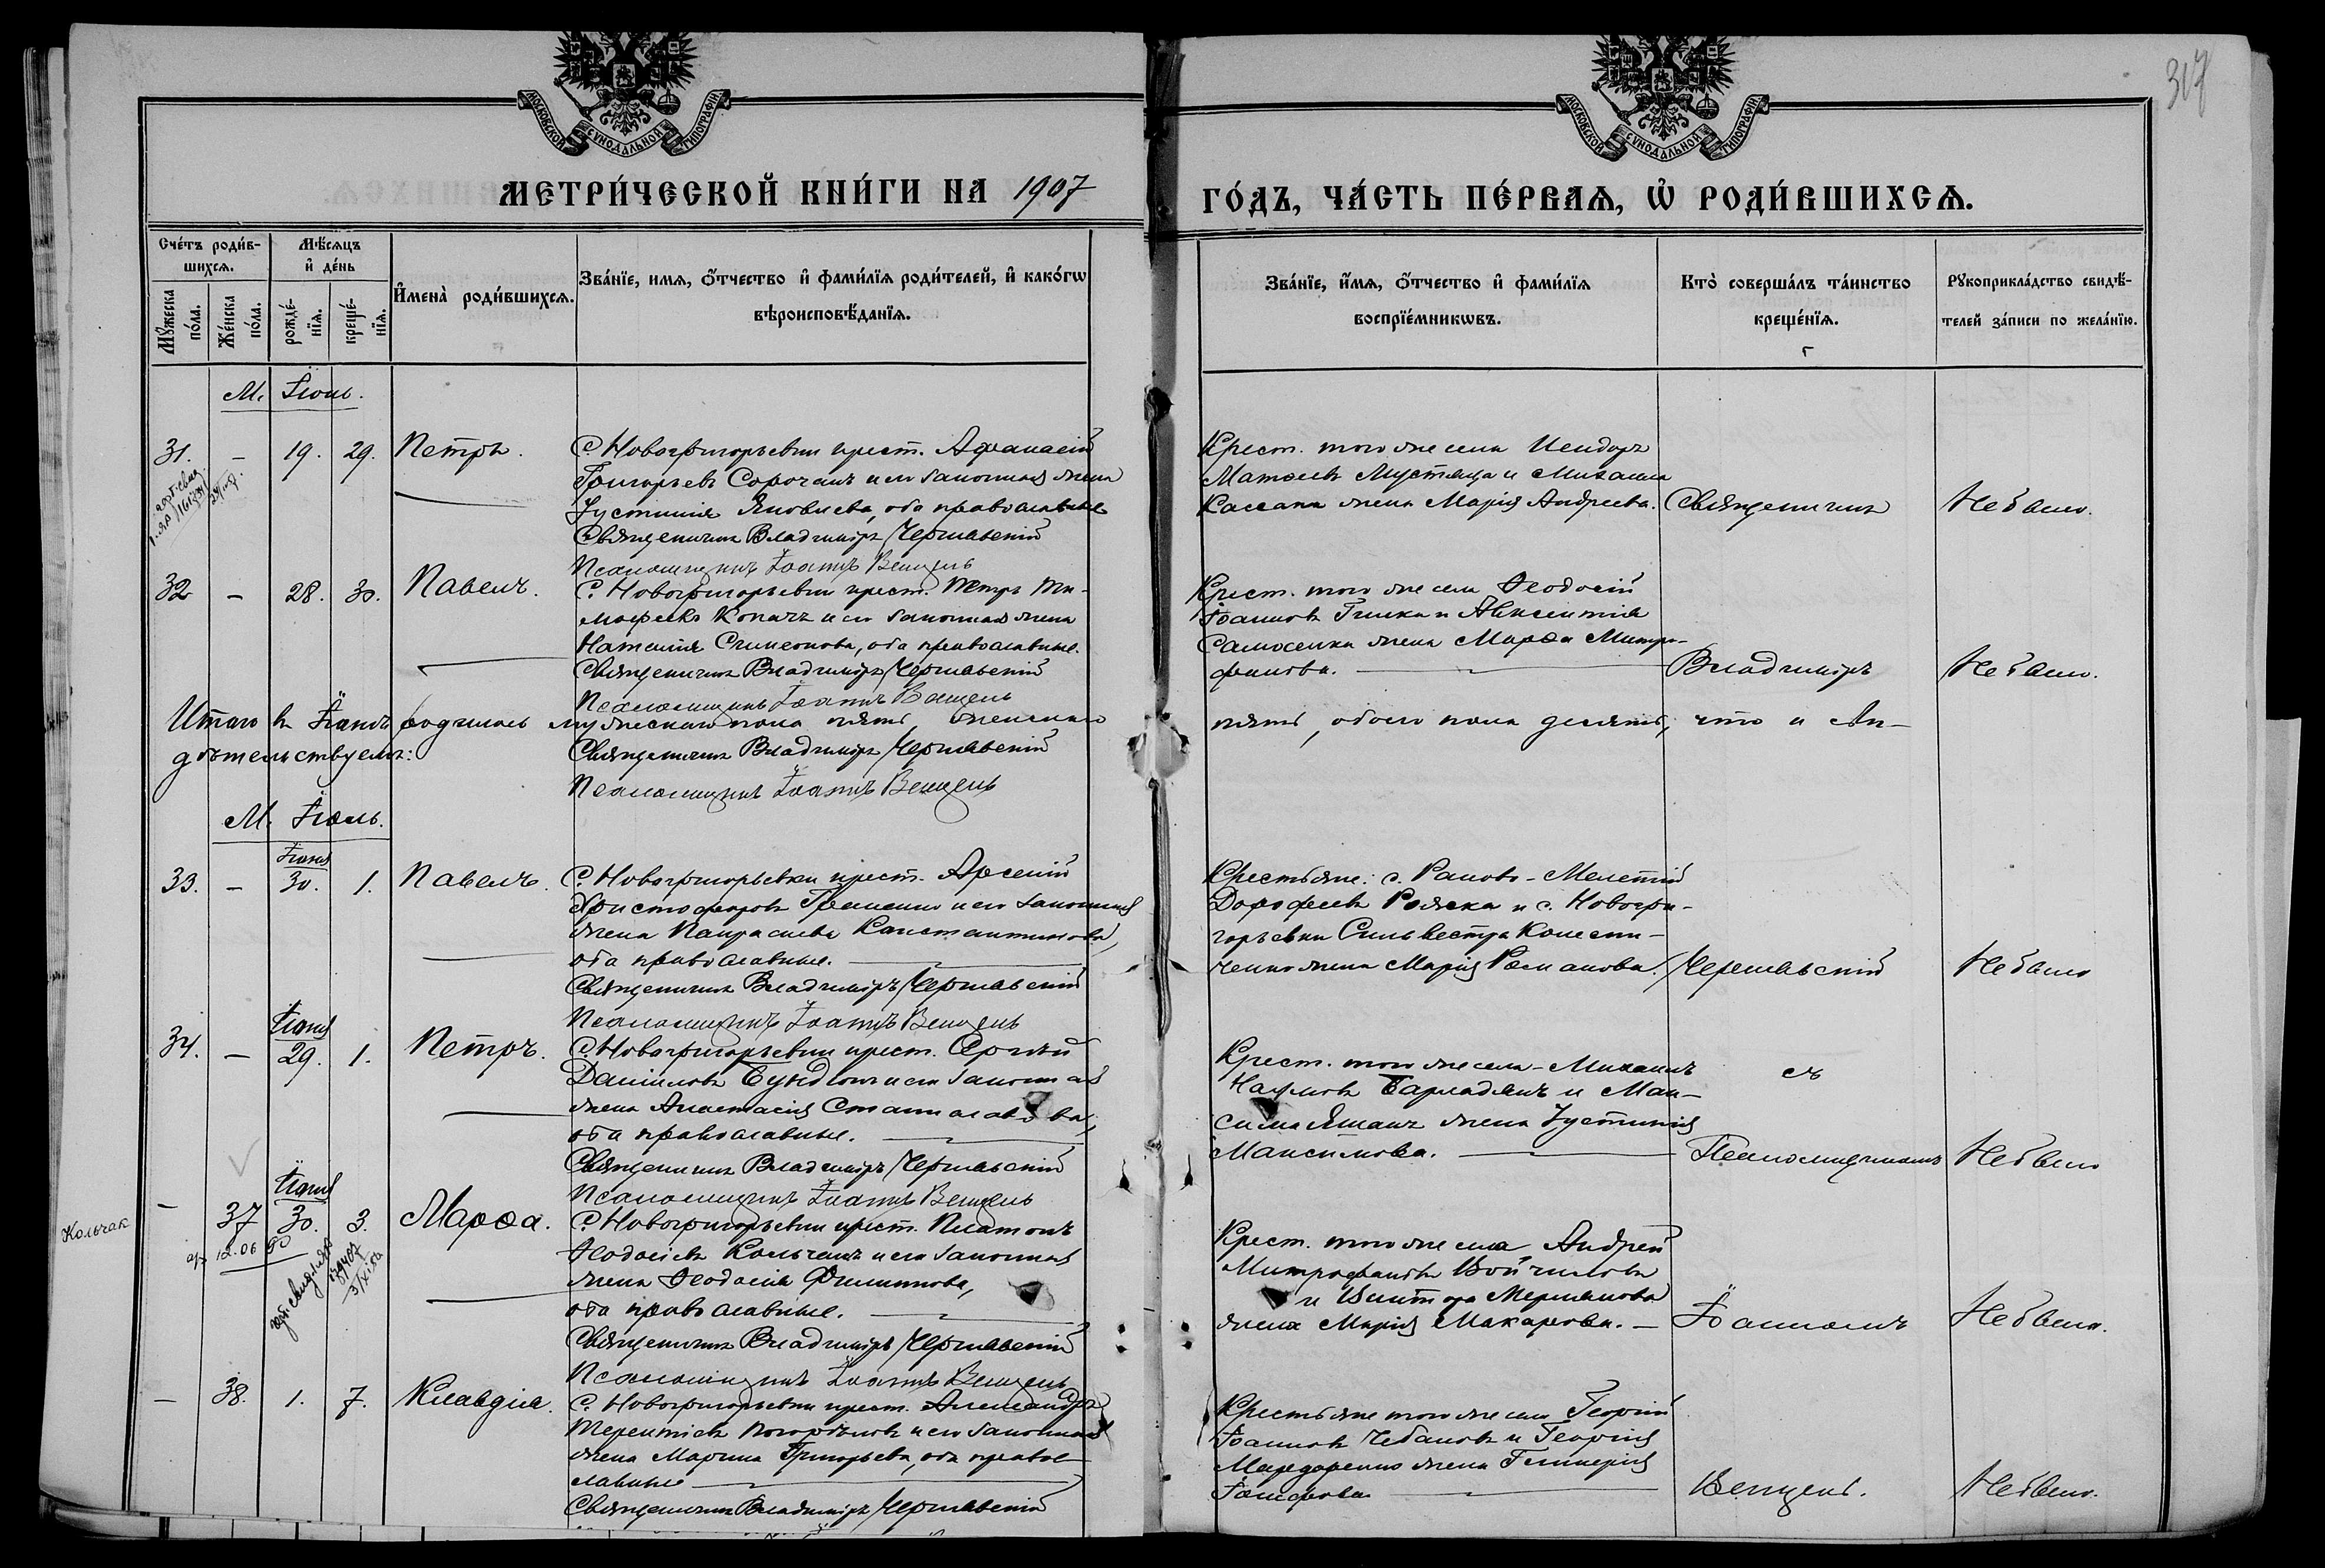 317
МОСКОВСКОЙ СУНОДАЛЬНОЙ ТИПОГРАФІИ
МОСКОВСКОЙ СУНОДАЛЬНОЙ ТИПОГРАФІИ
МЕТРИ́ЧЕСКОЙ КНИ́ГИ НА 1907
ГО́ДЪ, ЧА́СТЬ ПЕ́РВАѦ, Ѡ РОДИ́ВШИХСѦ.
Сче́тъ роди́в-
шихсѧ.
Мѣ́сѧцъ
и҆ де́нь
Мꙋ́жеска по́ла.
Же́нска по́ла.
рожде́-
нїѧ.
креще́-
нїѧ.
И҆мена̀ роди́вшихсѧ.
Зва́нїе, имѧ, ѻ҆́тчество и҆ фами́лїѧ роди́телей, и҆ како́гѡ
вѣроисповѣ́данїѧ.
Зва́нїе, и҆́мѧ, ѻ҆́тчество и҆ фами́лїѧ
воспрїе́мникѡвъ.
Кто̀ соверша́лъ та́инство
креще́нїѧ.
Рꙋкоприкла́дство свидѣ́-
телей за́писи по жела́нїю.
М. Іюнь.
31. – 19. 29. Петръ.
С. Новогригорьевки крест. Афанасій
Григорьевъ Сорочанъ и его законная жена
Іустинія Яковлева, оба православные
Священникъ Владиміръ Чернявскій
Псаломщикъ Іоаннъ Венцель
Крест. того же села Исидоръ
Матѳеевъ Мустяца и Михаила
Кассапа жена Марія Андреева.
Священникъ
Не было.
32 – 28. 30. Павелъ.
С. Новогригорьевки крест. Петръ Ти-
мофеевъ Копачъ и его законная жена
Наталія Симеонова, оба православные.
Священникъ Владиміръ Чернявскій
Псаломщикъ Іоаннъ Венцель
Крест. того же села Ѳеодосій
Іоанновъ Гилка и Авксентія
Самосенка жена Марѳа Митро-
фанова.
Владиміръ
Не было.
Итого въ Іюнѣ родилось мужескаго пола пять, женскаго
пять, обоего пола десять, что и сви-
дѣтельствуемъ:
Священникъ Владиміръ Чернявскій
Псаломщикъ Іоаннъ Венцель
М. Іюль.
Іюня
33. – 30. 1. Павелъ.
С. Новогригорьевки крест. Арсеній
Христофоровъ и его законная
жена Параскева Константинова,
оба православные.
Священникъ Владиміръ Чернявскій
Псаломщикъ Іоаннъ Венцель
Крестьяне: с. Раково – Мелетій
Дорофеевъ и с. Новогри-
горьевки Сильвестра Колесни-
ченко жена Марія Романова.
Чернявскій
Не было
Іюня
34. – 29. 1. Петръ.
С. Новогригорьевки крест. Сергѣй
Даніиловъ и его законная
жена Анастасія Станиславова,
оба православные.
Священникъ Владиміръ Чернявскій
Псаломщикъ Іоаннъ Венцель
Крест. того же села – Михаилъ
Наумовъ Барладянъ и Мак-
сима жена Іустинія
Максимова.
съ
Псаломщикомъ
Не было
Іюня
– 37 30. 3. Марѳа.
Кольчак
12.06
С. Новогригорьевки крест. Платонъ
Ѳеодосіевъ Кольчакъ и его законная
жена Ѳеодосія Филиппова,
оба православные.
Священникъ Владиміръ Чернявскій
Псаломщикъ Іоаннъ Венцель
Крест. того же села Андрей
Митрофановъ Войчиловъ
и Виктора
жена Марія Макарова.
Іоанномъ
Не было.
– 38. 1. 7. Клавдія.
С. Новогригорьевки крест. Александръ
Терентіевъ и его законная
жена Марина Григорьева, оба право-
славные
Священникъ Владиміръ Чернявскій
Крестьяне того же села Георгій
Іоанновъ Чебановъ и Георгія
жена Гликерія
Венцель.
Не было.